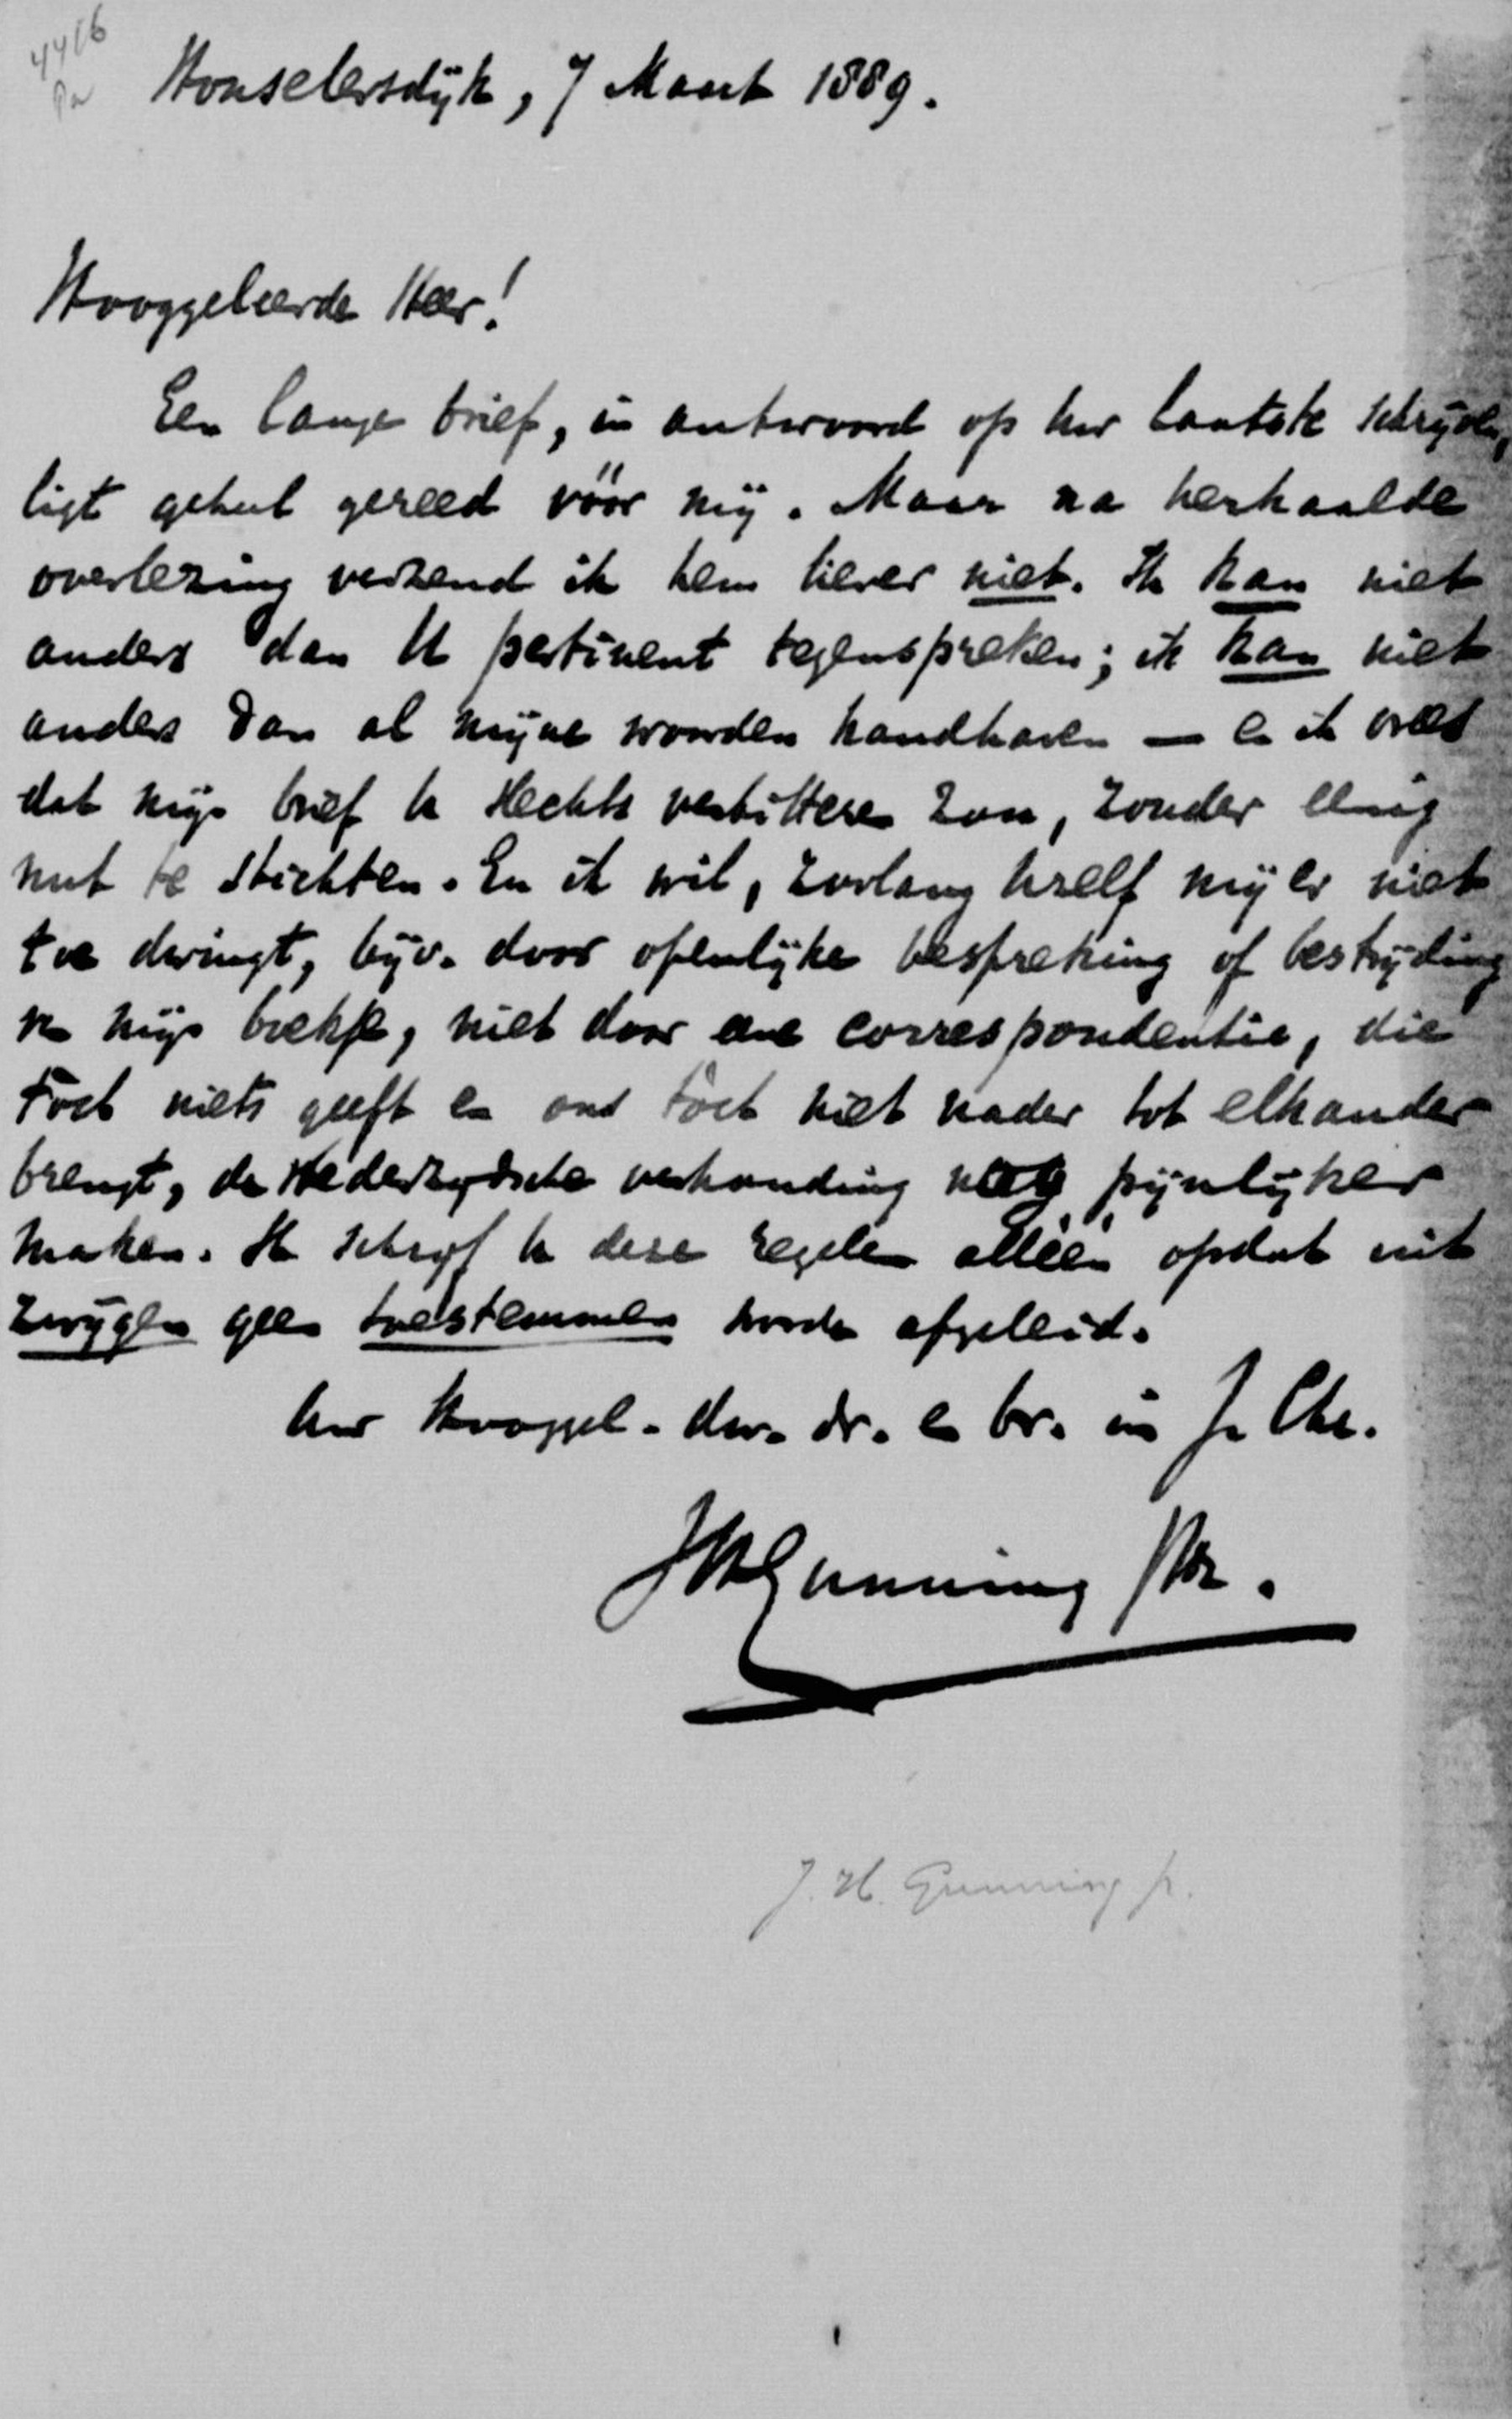 4416
Honselersdijk, 7 Maart 1889.
Hooggeleerde Heer!
Een lange brief, in antwoord op Uw laatste schrijven,
ligt geheel gereed vóór mij. Maar na herhaalde
overlezing verzend ik hem liever niet. Ik kan niet
anders dan U pertinent tegenspreken; ik kan niet
anders dan al mijne woorden handhaven — en ik vrees
dat mijn brief U slechts verbitteren zou, zonder eenig
nut te stichten. En ik wil, zoolang Uzelf mij er niet
toe dwingt, bijv. door openlijke bespreking of bestrijding
van mijn boekje, niet door eene correspondentie, die
tóch niets geeft en ons tóch niet nader tot elkander
brengt, de wederzijdsche verhouding nog pijnlijker
maken. Ik schrijf U deze regelen alléén opdat uit
zwijgen geen toestemmen worde afgeleid.
Uw Hooggel. dw. dr. en br. in J. Chr.
JHGunning JHz.
J. H. Gunning Jr.